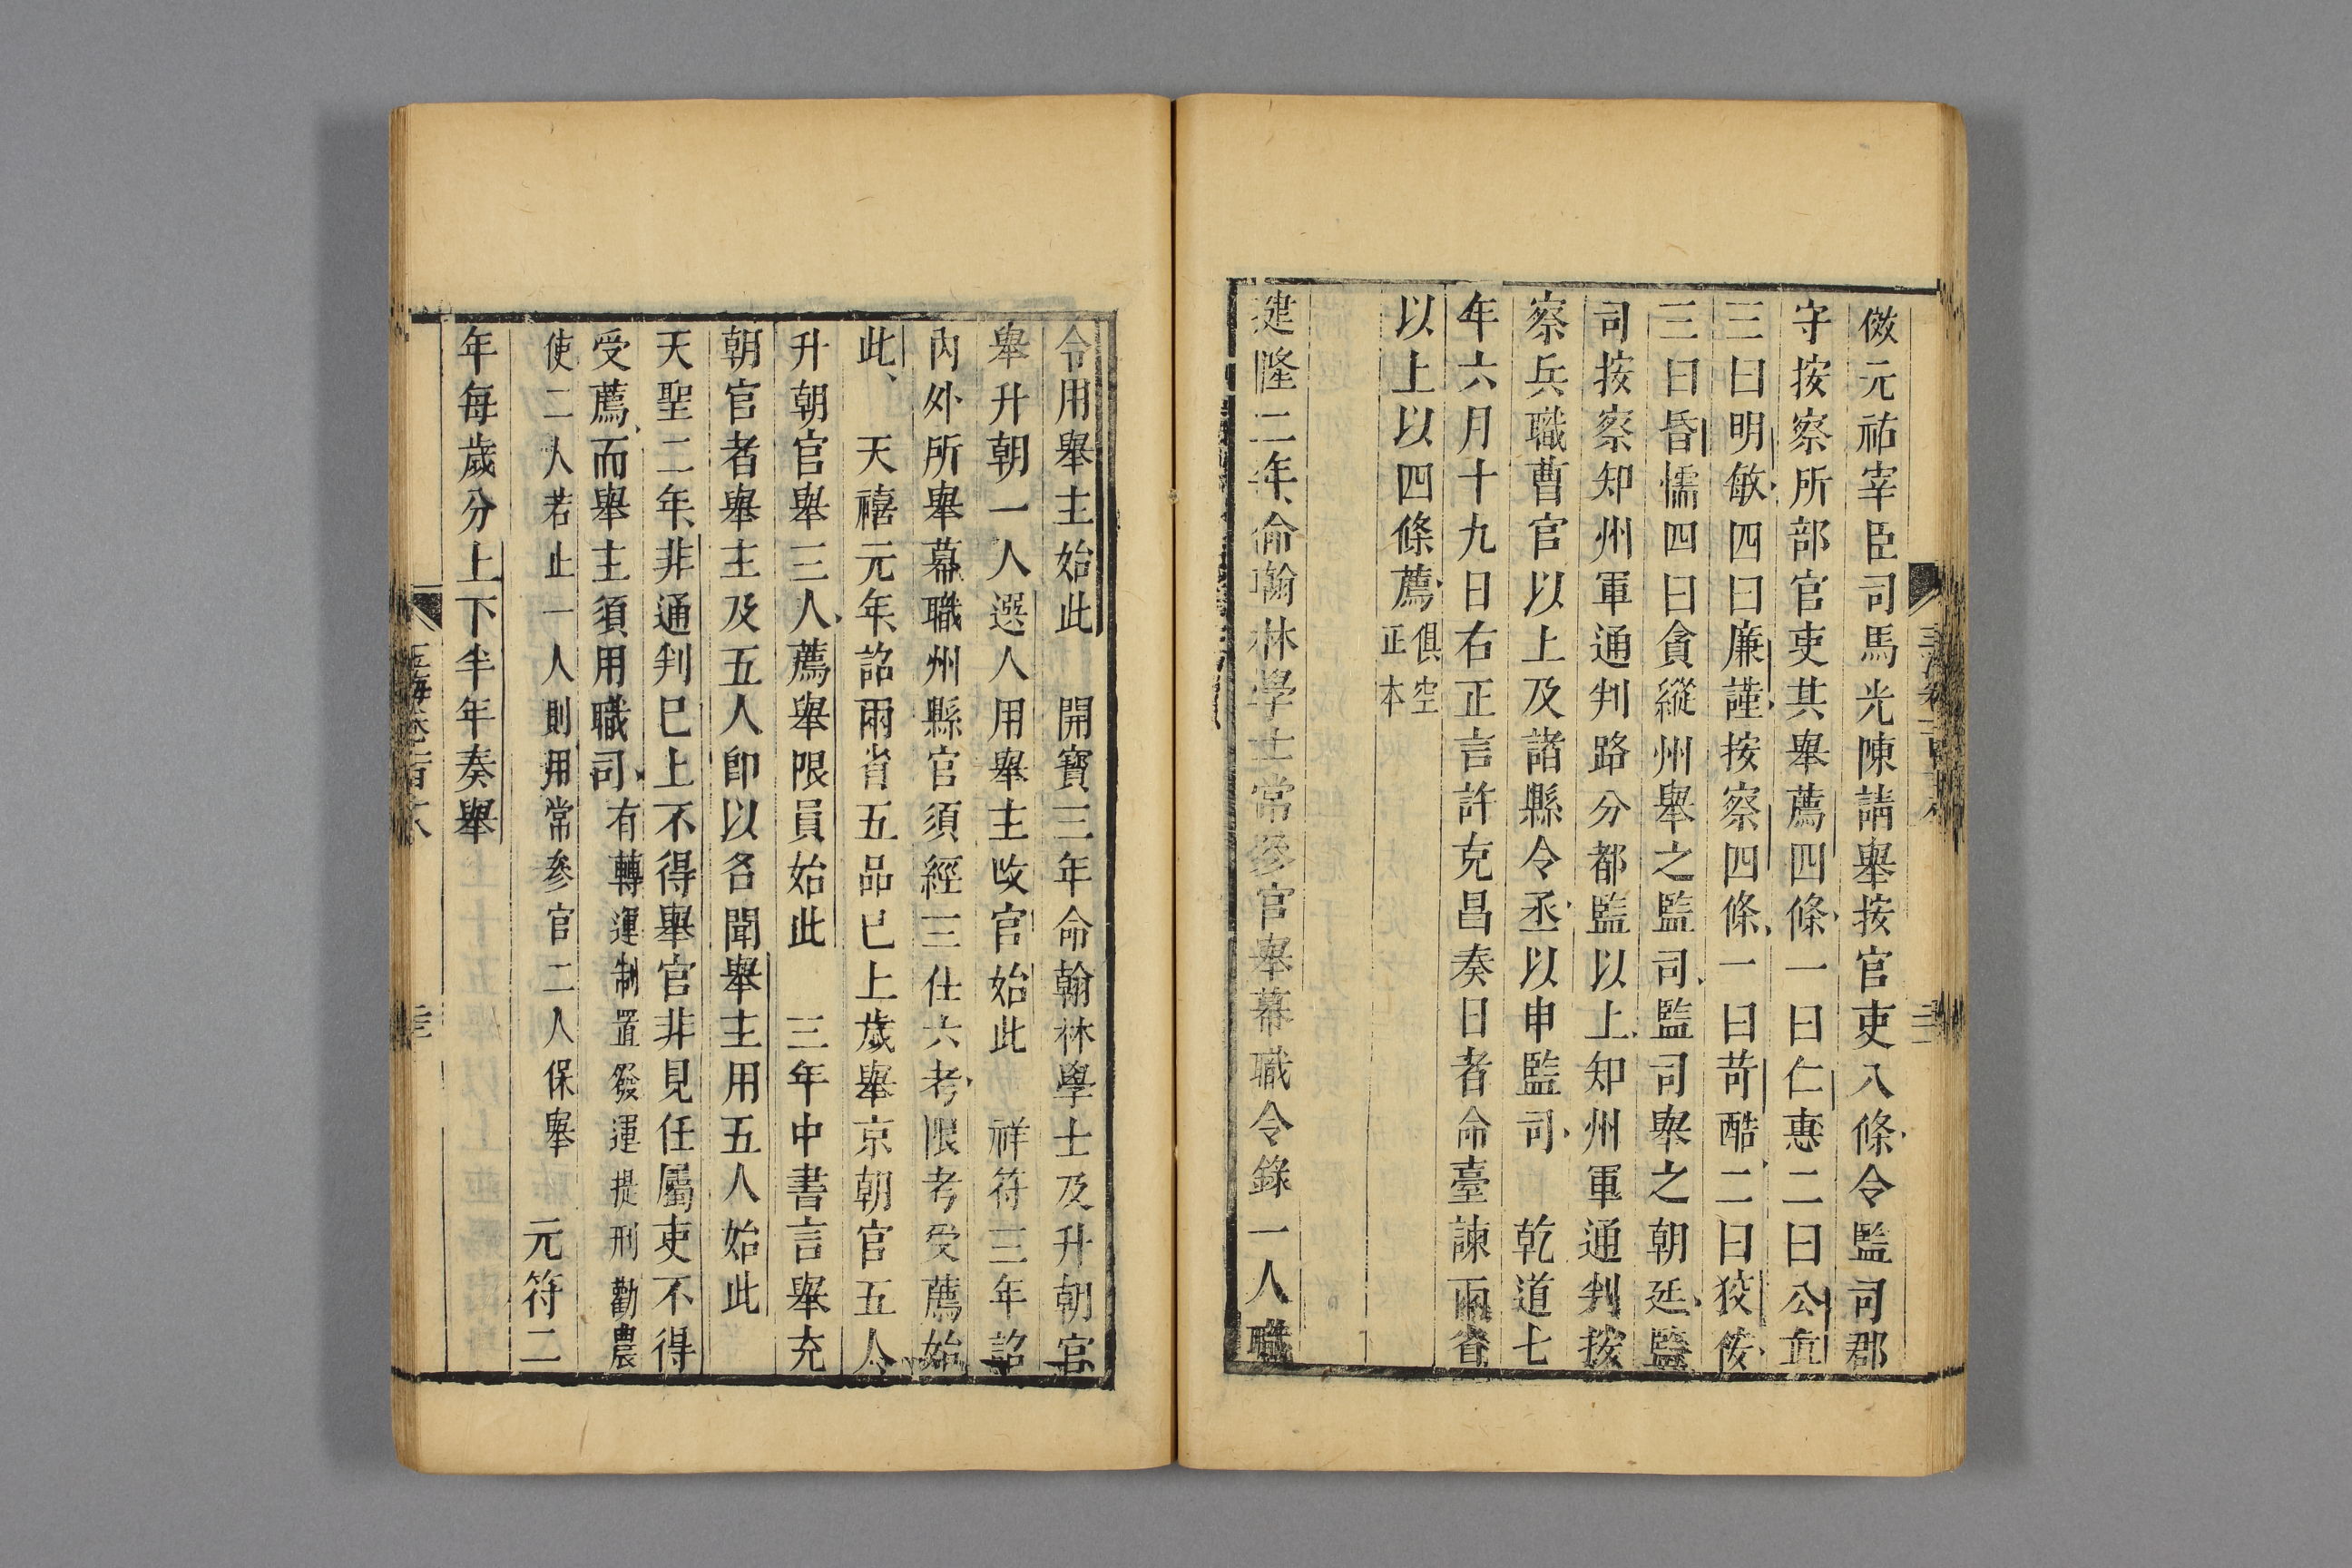 倣元祐宰臣司馬光陳請舉按官吏八條令監司郡
守按察所部官吏其舉薦四條一曰仁惠二曰公直
三曰明敏四曰廉謹按察四條一曰苛酷二曰狡佞
三曰昏懦四曰貪縱州舉之監司監司舉之朝廷監
司按察知州軍通判路分都監以上知州軍通判按
察兵職曹官以上及諸縣令丞以申監司　乾道七
年六月十九日右正言許克昌奏日者命臺諫兩省
以上以四條薦俱空正本
建隆二年命翰林學士常參官舉幕職令錄一人職
令用舉主始此　開寶三年命翰林學士及升朝官
舉升朝一人選人用舉主改官始此　祥符三年詔
內外所舉幕職州縣官須經三仕六考限考受薦始
此　天禧元年詔兩省五品已上歲舉京朝官五人
升朝官舉三人薦舉限員始此　三年中書言舉充
朝官者舉主及五人即以名聞舉主用五人始此
天聖二年非通判已上不得舉官非見任屬吏不得
受薦而舉主須用職司有轉運制置發運提刑勸農
使二人若止一人則用常參官二人保舉　元符二
年每歲分上下半年奏舉